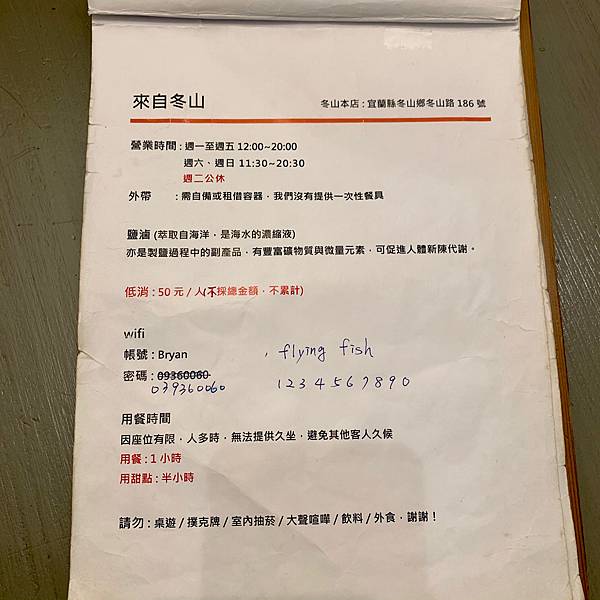 來自冬山 冬山本店 : 宜蘭縣冬山鄉冬山路 186 號
營業時間 : 週一至週五 12:00~20:00
週六、週日 11:30~20:30
週二公休
外帶 : 需自備或租借容器，我們沒有提供一次性餐具
鹽滷 (萃取自海洋，是海水的濃縮液)
亦是製鹽過程中的副產品，有豐富礦物質與微量元素，可促進人體新陳代謝。
低消 : 50 元 / 人(不採總金額，不累計)
wifi
帳號 : Bryan , flying fish
密碼 : 09360060
039360060 1234567890
用餐時間
因座位有限，人多時，無法提供久坐，避免其他客人久候
用餐 : 1 小時
用甜點 : 半小時
請勿 : 桌遊 / 撲克牌 / 室內抽菸 / 大聲喧嘩 / 飲料 / 外食，謝謝！